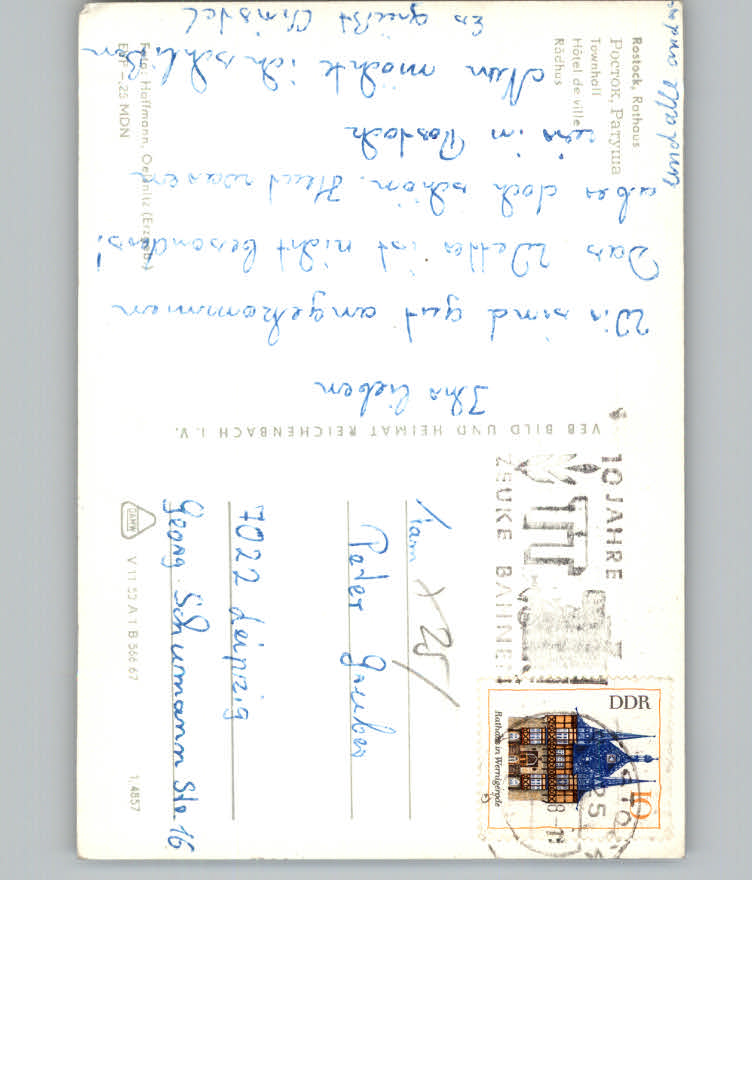 Rostock, Rathaus
Росток, Ратуша
Townhall
Hôtel de ville
Rådhus
Ihr lieben
Wir sind gut angekommen
Das Wetter ist nicht besonders!
aber doch schön. Heut waren
wir in Rostock
Nun möchte ich schließen
Es grüßt Christel
und
Foto: Hoffmann, Oelsnitz (Erzgeb.)
EVP –,25 MDN
VEB BILD UND HEIMAT REICHENBACH i. V.
10 JAHRE
ZEUKE BAHNEN
TT
DDR
10
Rathaus in Wernigerode
25
Fam
Peter Gruber
7022 Leipzig
Georg Schumann Str. 16
DAMW
V 11 53 A 1 B 566 67
1.4857